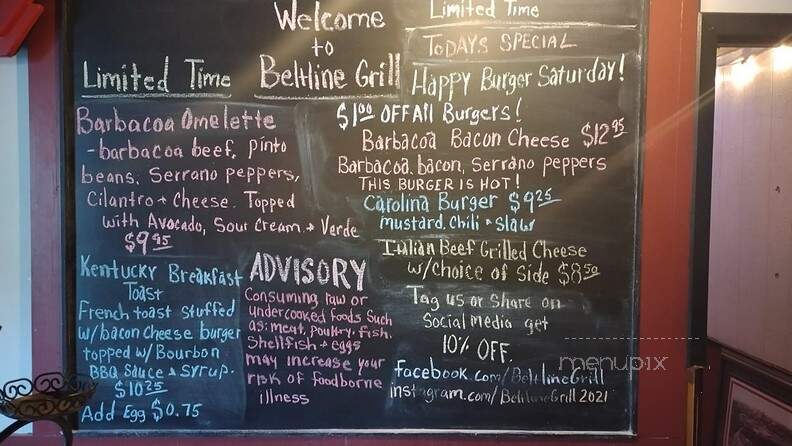 Welcome
to
Beltline Grill
Limited Time
Barbacoa Omelette
- barbacoa beef, pinto
beans, Serrano peppers,
Cilantro + Cheese. Topped
with Avocado, Sour Cream + Verde
$9.95
Kentucky Breakfast
Toast
French toast stuffed
w/ bacon cheese burger
topped w/ Bourbon
BBQ Sauce + syrup.
$10.25
Add Egg $0.75
ADVISORY
Consuming raw or
undercooked foods such
as: meat, poultry, fish,
Shellfish + eggs
may increase your
risk of foodborne
illness
Limited Time
TODAYS SPECIAL
Happy Burger Saturday!
$1.00 OFF All Burgers!
Barbacoa Bacon Cheese $12.95
Barbacoa, bacon, Serrano peppers
THIS BURGER IS HOT!
Carolina Burger $9.25
mustard, Chili + Slaw
Italian Beef Grilled Cheese
w/Choice of Side $8.50
Tag us or Share on
Social media get
10% OFF.
facebook.com/BeltlineGrill
instagram.com/BeltlineGrill2021
menupix